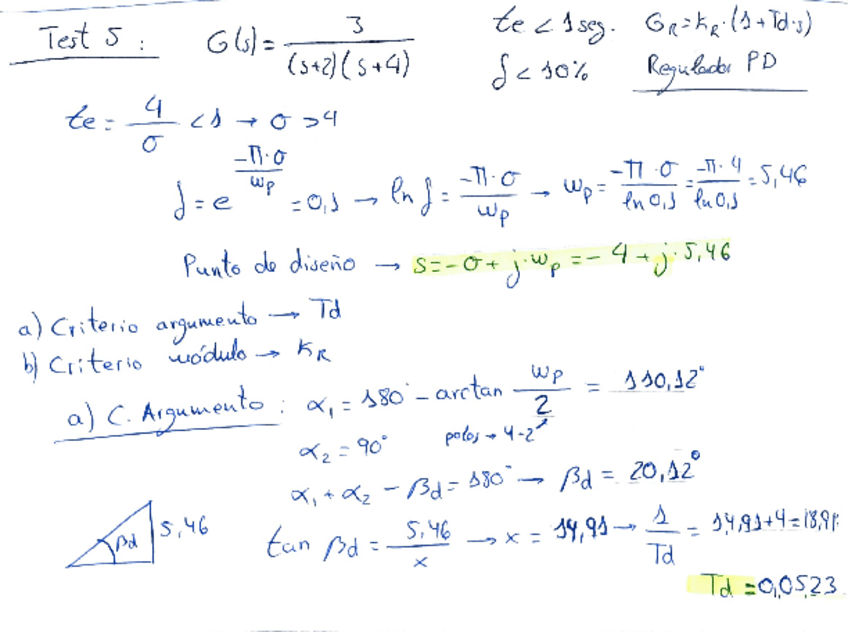 Test 5 : G(s) = 3 / (s+2)(s+4) te < 1 seg. GR = KR·(1+Td·s)
δ < 10% Regulador PD
te = 4/σ < 1 → σ > 4
δ = e^(-π·σ/ωp) = 0,1 → ln δ = -π·σ/ωp → ωp = -π·σ/ln 0,1 = -π·4/ln 0,1 = 5,46
Punto de diseño → s = -σ + j·ωp = -4 + j·5,46
a) Criterio argumento → Td
b) Criterio módulo → KR
a) C. Argumento : α1 = 180° - arctan ωp/2 = 110,12°
α2 = 90° polos → 4-2
α1 + α2 - βd = 180° → βd = 20,12°
βd 5,46 tan βd = 5,46/x → x = 14,91 → 1/Td = 14,91+4 = 18,91
Td = 0,0523